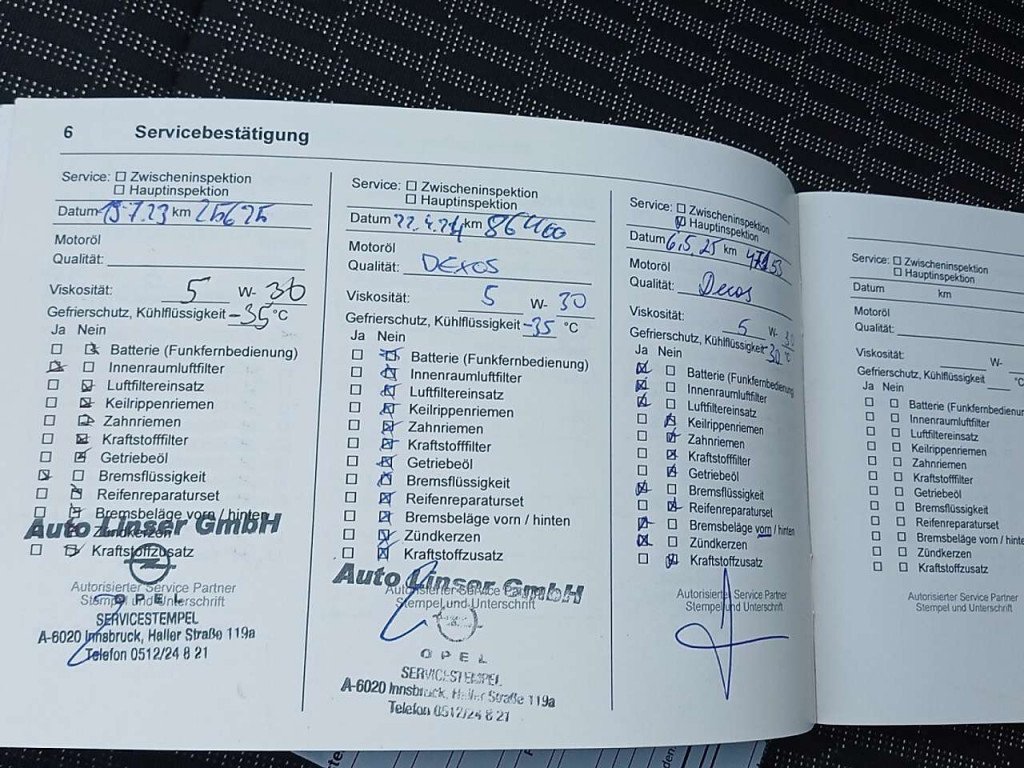 6 Servicebestätigung
Service: Zwischeninspektion
Hauptinspektion
Datum 19.7.23 km 25625
Motoröl
Qualität:
Viskosität: 5 W- 30
Gefrierschutz, Kühlflüssigkeit -35 °C
Ja Nein
Batterie (Funkfernbedienung)
Innenraumluftfilter
Luftfiltereinsatz
Keilrippenriemen
Zahnriemen
Kraftstofffilter
Getriebeöl
Bremsflüssigkeit
Reifenreparaturset
Bremsbeläge vorn / hinten
Auto Linser GmbH
Zündkerzen
Kraftstoffzusatz
Autorisierter Service Partner
Stempel und Unterschrift
OPEL
SERVICESTEMPEL
A-6020 Innsbruck, Haller Straße 119a
Telefon 0512/24 8 21
Service: Zwischeninspektion
Hauptinspektion
Datum 22.4.24 km
Motoröl
Qualität: Dexos
Viskosität: 5 W- 30
Gefrierschutz, Kühlflüssigkeit -35 °C
Ja Nein
Batterie (Funkfernbedienung)
Innenraumluftfilter
Luftfiltereinsatz
Keilrippenriemen
Zahnriemen
Kraftstofffilter
Getriebeöl
Bremsflüssigkeit
Reifenreparaturset
Bremsbeläge vorn / hinten
Zündkerzen
Kraftstoffzusatz
Auto Linser GmbH
Autorisierter Service Partner
Stempel und Unterschrift
OPEL
SERVICESTEMPEL
A-6020 Innsbruck, Haller Straße 119a
Telefon 0512/24 8 21
Service: Zwischeninspektion
Hauptinspektion
Datum 6.5.25 km
Motoröl
Qualität: Dexos
Viskosität: 5 W- 30
Gefrierschutz, Kühlflüssigkeit -30 °C
Ja Nein
Batterie (Funkfernbedienung
Innenraumluftfilter
Luftfiltereinsatz
Keilrippenriemen
Zahnriemen
Kraftstofffilter
Getriebeöl
Bremsflüssigkeit
Reifenreparaturset
Bremsbeläge vorn / hinten
Zündkerzen
Kraftstoffzusatz
Autorisierter Service Partner
Stempel und Unterschrift
Service: Zwischeninspektion
Hauptinspektion
Datum km
Motoröl
Qualität:
Viskosität: W-
Gefrierschutz, Kühlflüssigkeit °C
Ja Nein
Batterie (Funkfernbedienun
Innenraumluftfilter
Luftfiltereinsatz
Keilrippenriemen
Zahnriemen
Kraftstofffilter
Getriebeöl
Bremsflüssigkeit
Reifenreparaturset
Bremsbeläge vorn / hinte
Zündkerzen
Kraftstoffzusatz
Autorisierter Service Partner
Stempel und Unterschrift